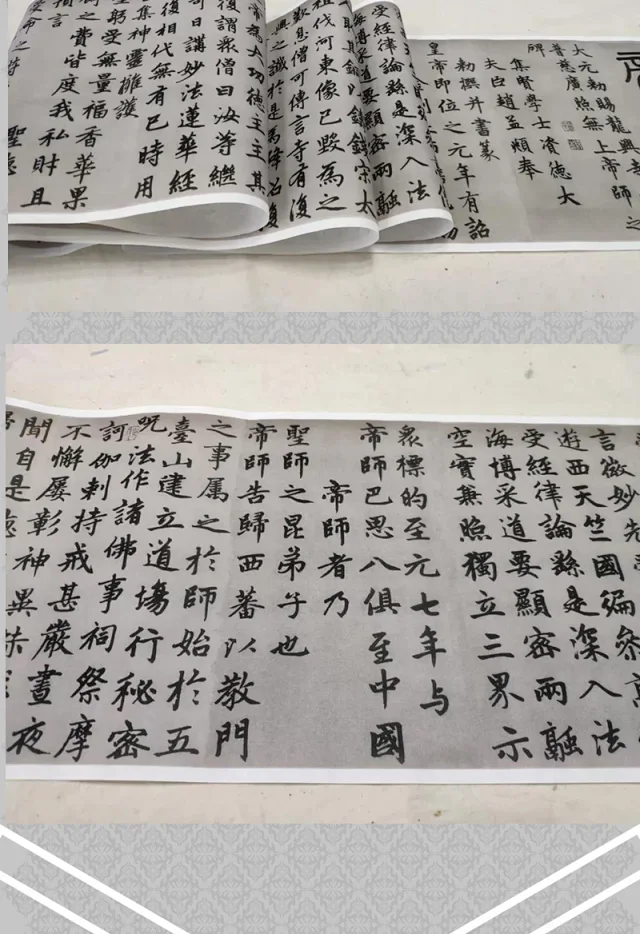 大元勅賜龍興寺
普慈廣照無上帝師之
碑
集賢學士資德大
夫臣趙孟頫奉
勅撰并書篆
皇帝即位之元年有詔
受經律論繇是深入法
海博采道要顯密兩融
祖伐河東像已毀為之
歎息僧可傳言寺有復
興之讖於是為降詔復
帝為大功德主主其
復謂眾僧曰汝等繼
今日講妙法蓮華經
復相代無有已時用
集神靈擁護
躬受無量福香華果
之費皆度我私財且
言微妙先
遊西天竺國徧參高
受經律論繇是深入法
海博采道要顯密兩融
空實兼照獨立三界示
眾標的至元七年与
帝師巴思八俱至中國
帝師者乃
聖師之昆弟子也
帝師告歸西蕃以教門
之事属之於師始於五
臺山建立道場行秘密
呪法作諸佛事祠祭摩
訶伽剌持戒甚嚴晝夜
不懈屡彰神異
聞自是德